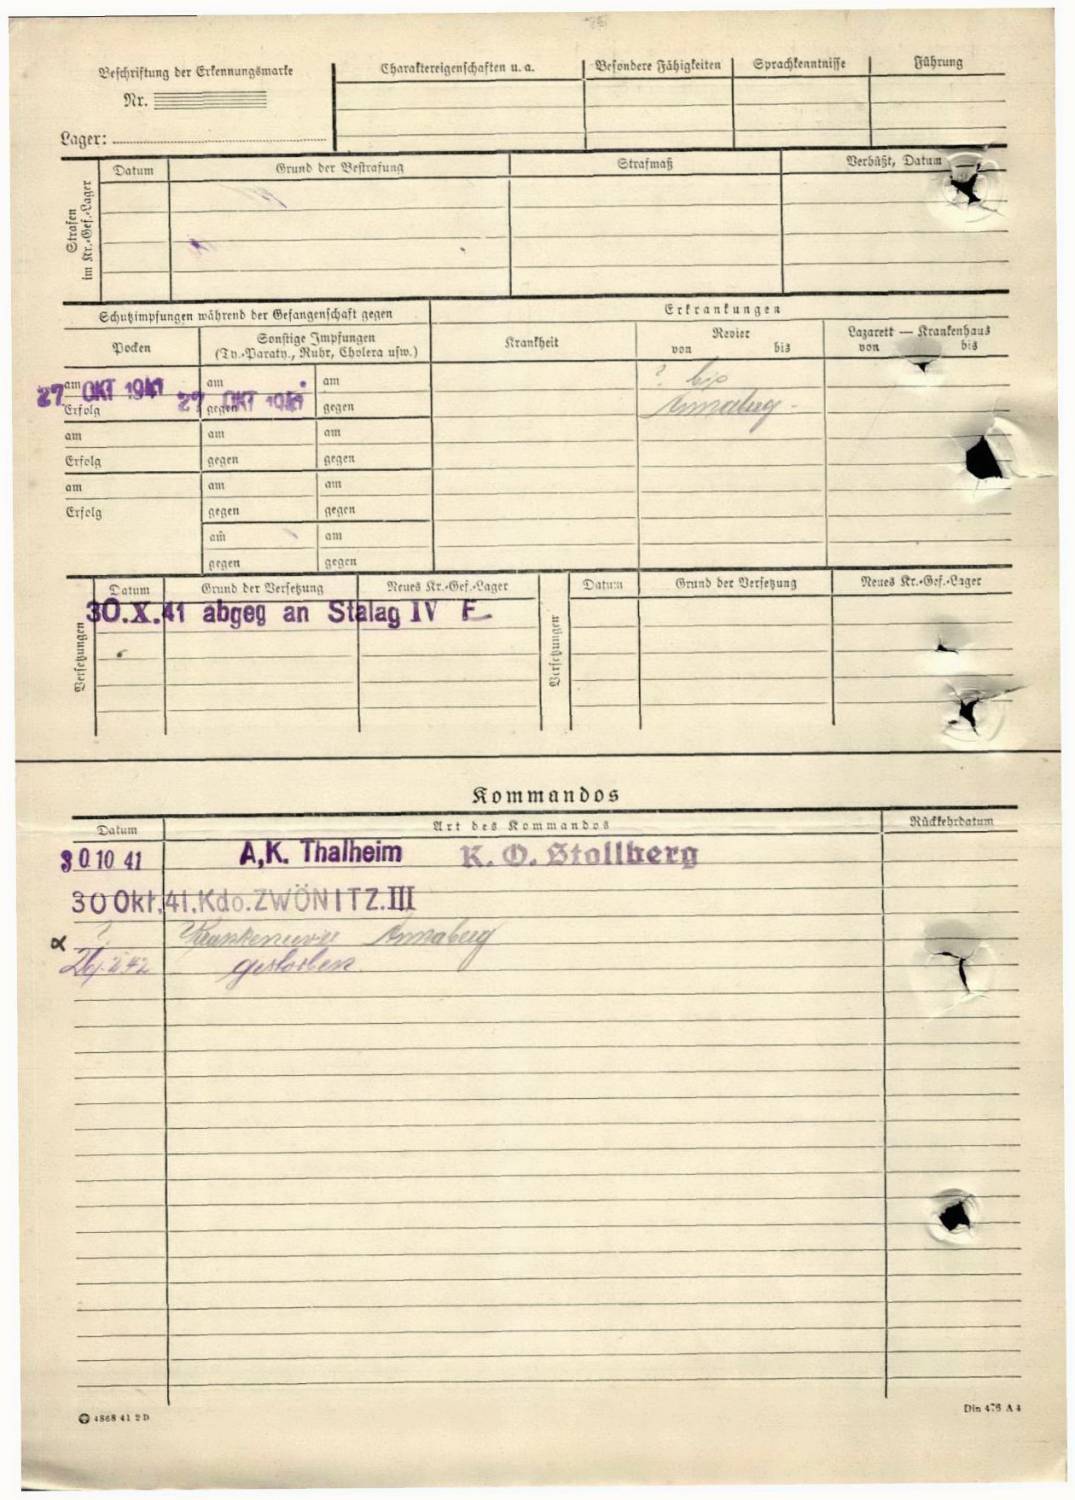 Beschriftung der Erkennungsmarke
Nr.
Lager:
Charaktereigenschaften u. a.
Besondere Fähigkeiten
Sprachkenntnisse
Führung
Strafen
im Kr.-Gef.-Lager
Datum
Grund der Bestrafung
Strafmaß
Verbüßt, Datum
Schutzimpfungen während der Gefangenschaft gegen
Erkrankungen
Pocken
Sonstige Impfungen
(Ty.-Paraty., Ruhr, Cholera usw.)
Krankheit
Revier
von bis
Lazarett — Krankenhaus
von bis
am 27 OKT 1941
Erfolg
am 27 OKT 1941
gegen
am
gegen
? bis
Annaberg -
am
Erfolg
am
gegen
am
gegen
am
Erfolg
am
gegen
am
gegen
am
gegen
am
gegen
Versetzungen
Datum
Grund der Versetzung
Neues Kr.-Gef.-Lager
Versetzungen
Datum
Grund der Versetzung
Neues Kr.-Gef.-Lager
30.X.41 abgeg an Stalag IV F
Kommandos
Datum
Art des Kommandos
Rückkehrdatum
30 10 41 A,K. Thalheim K. O. Stollberg
30 Okt. 41. Kdo. ZWÖNITZ. III
? Annaberg
42 gestorben
4868 41 2 D
Din 476 A 4